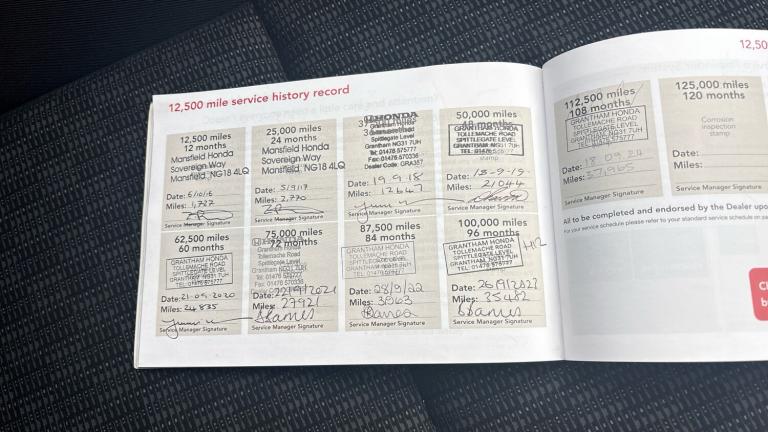 12,500 mile service history record
12,500 miles
12 months
Mansfield Honda
Sovereign Way
Mansfield, NG18 4LQ
Date: 6/10/16
Miles: 1,727
Service Manager Signature
25,000 miles
24 months
Mansfield Honda
Sovereign Way
Mansfield, NG18 4LQ
Date: 5/9/17
Miles: 2,770
Service Manager Signature
HONDA
Grantham Honda
Spittlegate Level
Grantham NG31 7UH
Tel: 01476 575777
Fax: 01476 570336
Dealer Code: GRA357
Date: 19.9.18
Miles: 12647
Service Manager Signature
50,000 miles
48 months
GRANTHAM HONDA
TOLLEMACHE ROAD
SPITTLEGATE LEVEL
GRANTHAM NG31 7UH
TEL: 01476 575777
stamp
Date: 13-9-19
Miles: 21044
Service Manager Signature
62,500 miles
60 months
GRANTHAM HONDA
TOLLEMACHE ROAD
SPITTLEGATE LEVEL
GRANTHAM NG31 7UH
TEL: 01476 575777
Date: 21-09-2020
Miles: 24835
Service Manager Signature
75,000 miles
72 months
Grantham Honda
Tollemache Road
Spittlegate Level
Grantham NG31 7UH
Tel: 01476 575777
Fax: 01476 570336
Date: 22/9/2021
Miles: 27921
SBarnes
Service Manager Signature
87,500 miles
84 months
GRANTHAM HONDA
TOLLEMACHE ROAD
SPITTLEGATE LEVEL
GRANTHAM NG31 7UH
TEL: 01476 575777
Date: 28/9/22
Miles:
Service Manager Signature
100,000 miles
96 months
GRANTHAM HONDA
TOLLEMACHE ROAD
SPITTLEGATE LEVEL
GRANTHAM NG31 7UH
TEL: 01476 575777
Date: 26/9/2023
Miles: 35482
SBarnes
Service Manager Signature
12,50
112,500 miles
108 months
GRANTHAM HONDA
TOLLEMACHE ROAD
SPITTLEGATE LEVEL
GRANTHAM NG31 7UH
TEL: 01476 575777
Date: 18 09 24
Miles: 37,965
Service Manager Signature
125,000 miles
120 months
Corrosion
inspection
stamp
Date:
Miles:
Service Manager Signature
All to be completed and endorsed by the Dealer upo
For your service schedule please refer to your standard service schedule on pa